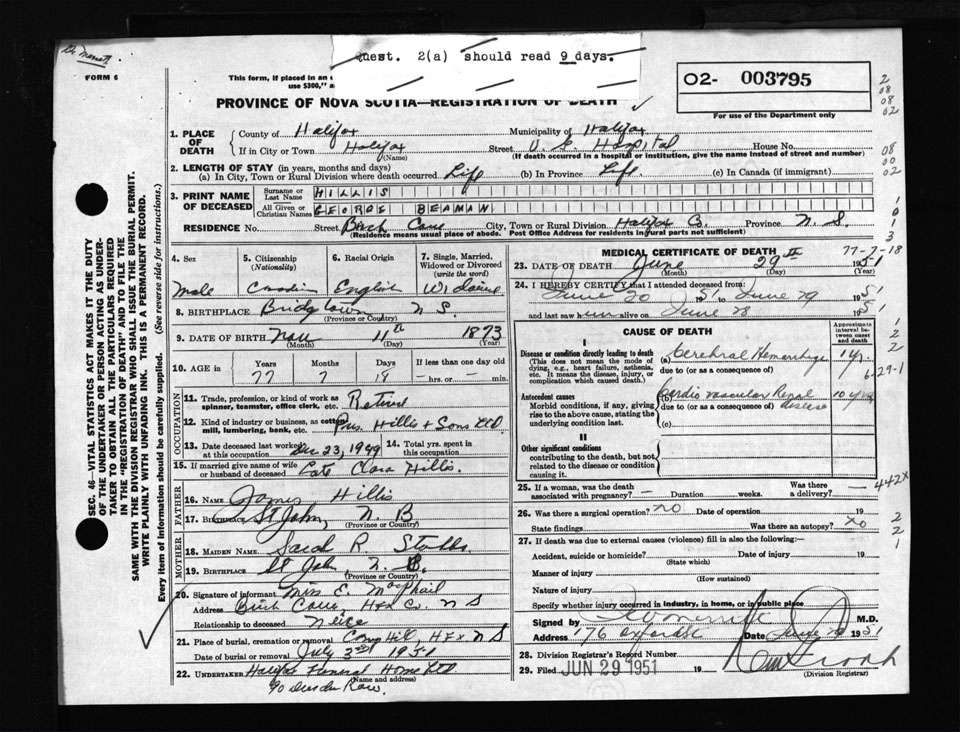 Dr Merritt
Quest. 2(a) should read 9 days.
FORM 6
This form, if placed in an
use $300," a
O2- 003795
PROVINCE OF NOVA SCOTIA—REGISTRATION OF DEATH
For use of the Department only
1. PLACE OF DEATH
County of Halifax Municipality of Halifax
If in City or Town Halifax (Name) Street V. G. Hospital House No.
(If death occurred in a hospital or institution, give the name instead of street and number)
2. LENGTH OF STAY (in years, months and days)
(a) In City, Town or Rural Division where death occurred Life (b) In Province Life (c) In Canada (if immigrant)
3. PRINT NAME OF DECEASED
Surname or Last Name HILLIS
All Given or Christian Names GEORGE BEAMAN
RESIDENCE No. Street Birch Cove City, Town or Rural Division Halifax Co. Province N. S.
(Residence means usual place of abode. Post Office Address for residents in rural parts not sufficient)
4. Sex Male
5. Citizenship (Nationality) Canadian
6. Racial Origin English
7. Single, Married, Widowed or Divorced (write the word) Widower
8. BIRTHPLACE Bridgetown N S.
(Province or Country)
9. DATE OF BIRTH Nov 11th 1873
(Month) (Day) (Year)
10. AGE in Years Months Days If less than one day old
77 7 18 hrs. or min.
OCCUPATION
11. Trade, profession, or kind of work as spinner, teamster, office clerk, etc. Retired
12. Kind of industry or business, as cotton mill, lumbering, bank, etc. Pres. Hillis & Sons Ltd
13. Date deceased last worked at this occupation Dec 23, 1949 14. Total yrs. spent in this occupation
15. If married give name of wife or husband of deceased Late Clara Hillis.
FATHER
16. NAME James Hillis
17. BIRTHPLACE St John, N. B
(Province or Country)
MOTHER
18. MAIDEN NAME Sarah R. Stubbs
19. BIRTHPLACE St John, N. B.
(Province or Country)
20. Signature of informant Miss E. MacPhail
Address Birch Cove, Hfx Co, N S
Relationship to deceased Neice
21. Place of burial, cremation or removal Camp Hill, Hfx N S
Date of burial or removal July 3rd 1951
22. UNDERTAKER Halifax Funeral Home Ltd
(Name and address)
MEDICAL CERTIFICATE OF DEATH
77-7-18
23. DATE OF DEATH June 29th 1951
(Month) (Day) (Year)
24. I HEREBY CERTIFY that I attended deceased from:
June 20 51 to June 29 1951
and last saw him alive on June 28 1951
CAUSE OF DEATH
Approximate interval between onset and death
I
Disease or condition directly leading to death (a) Cerebral Hemorrhage 1 yr.
(This does not mean the mode of dying, e.g., heart failure, asthenia, etc. It means the disease, injury, or complication which caused death.)
due to (or as a consequence of)
6-29-1
Antecedent causes (b) Cardio vascular Renal disease 10 yrs
Morbid conditions, if any, giving rise to the above cause, stating the underlying condition last.
due to (or as a consequence of)
(c)
II
Other significant conditions
contributing to the death, but not related to the disease or condition causing it
25. If a woman, was the death associated with pregnancy? Duration weeks. Was there a delivery?
442X
26. Was there a surgical operation? NO Date of operation 19
State findings Was there an autopsy? NO
27. If death was due to external causes (violence) fill in also the following:—
Accident, suicide or homicide? Date of injury 19
(State which)
Manner of injury
(How sustained)
Nature of injury
Specify whether injury occurred in industry, in home, or in public place
Signed by M.D.
Address 176 Oxford St Date June 29 1951
28. Division Registrar's Record Number
29. Filed JUN 29 1951 19
(Division Registrar)
SEC. 46—VITAL STATISTICS ACT MAKES IT THE DUTY
OF THE UNDERTAKER OR PERSON ACTING AS UNDER-
TAKER TO OBTAIN ALL THE PARTICULARS REQUIRED
IN THE "REGISTRATION OF DEATH" AND TO FILE THE
SAME WITH THE DIVISION REGISTRAR WHO SHALL ISSUE THE BURIAL PERMIT.
WRITE PLAINLY WITH UNFADING INK. THIS IS A PERMANENT RECORD.
Every item of information should be carefully supplied. (See reverse side for instructions.)